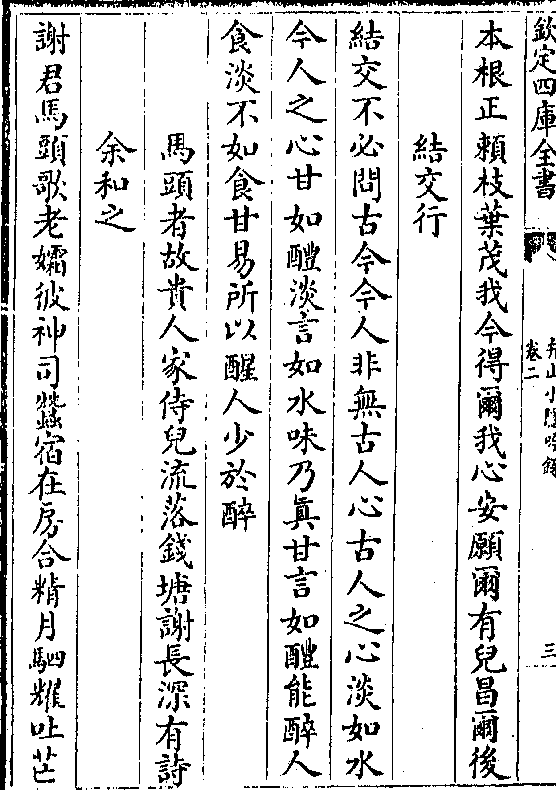 欽定四庫全書
卷二
三
本根正頼枝葉茂我今得爾我心安願爾有兒昌爾後
結交行
結交不必問古今今人非無古人心古人之心淡如水
今人之心甘如醴淡言如水味乃眞甘言如醴能醉人
食淡不如食甘易所以醒人少於醉
馬頭者故貴人家侍兒流落錢塘謝長深有詩
余和之
謝君馬頭歌老嬬彼神司蠶宿在房合精月駟耀吐芒